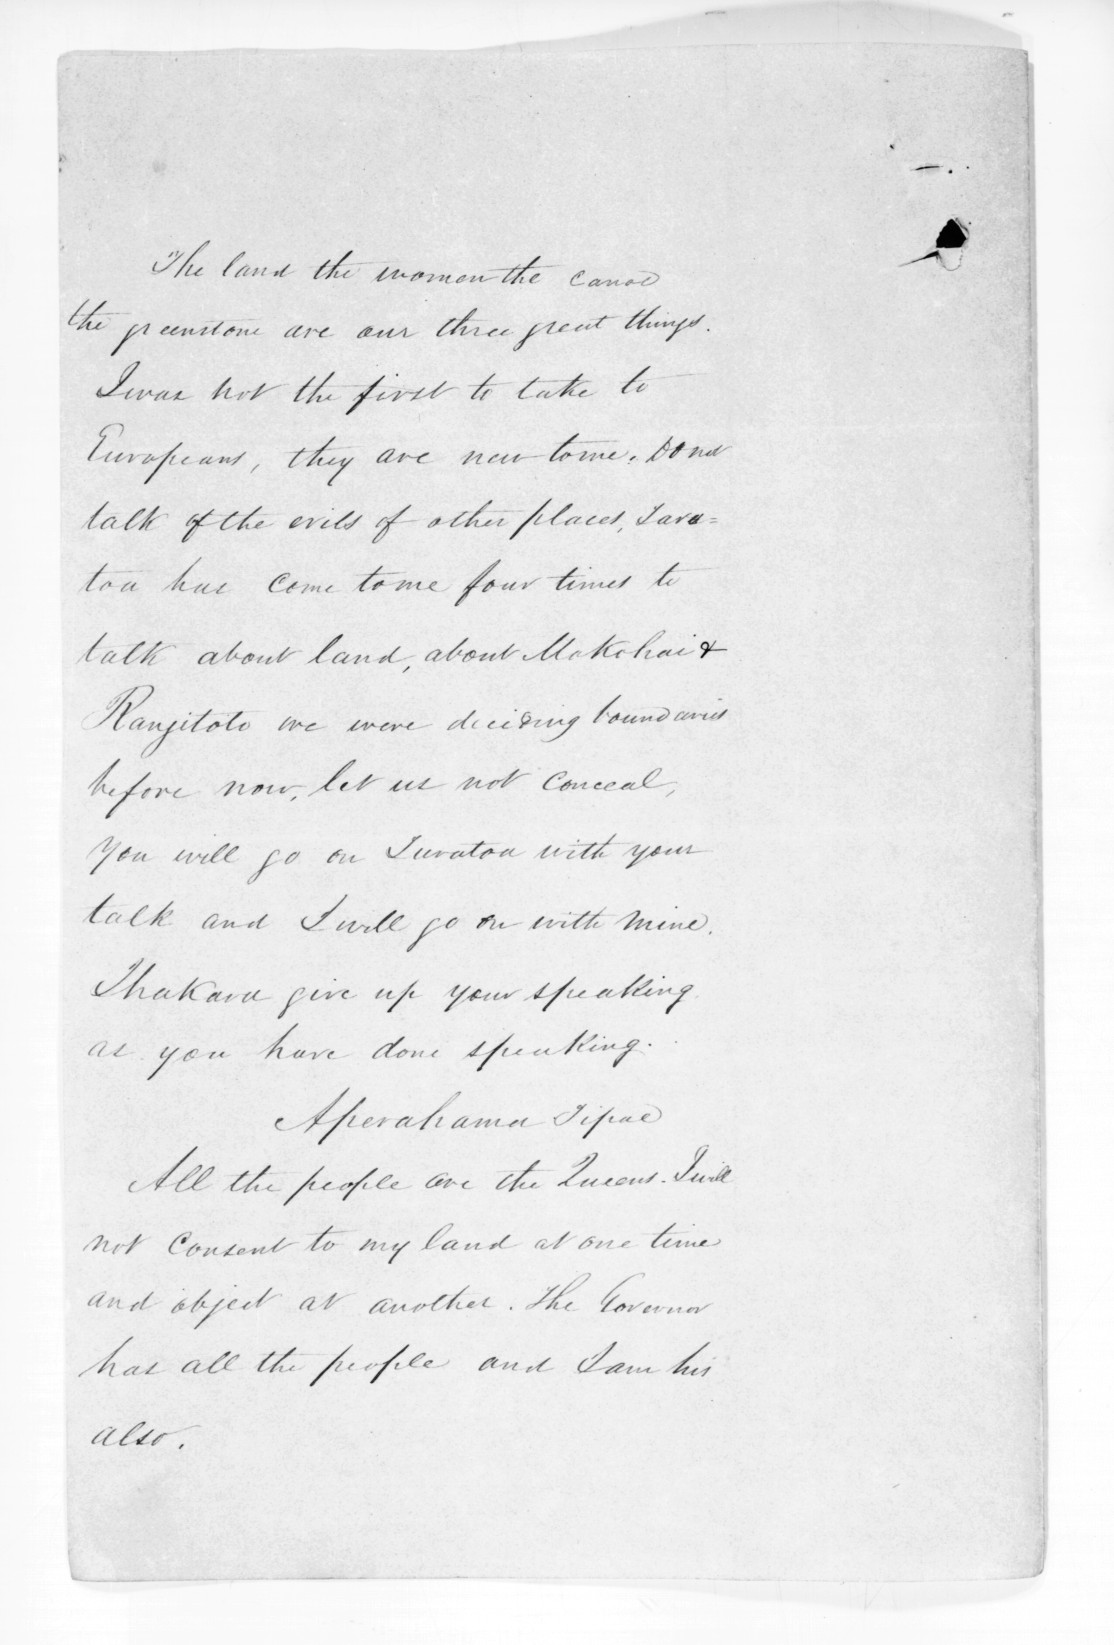 The land the women the canoe
the greenstone are our three great things.
I was not the first to take to
Europeans, they are new to me. Do not
talk of the evils of other places, Tara=
toa has come to me four times to
talk about land, about Mokohai &
Rangitoto we were deciding boundaries
before now, let us not conceal,
You will go on Turatoa with your
talk and I will go on with mine.
Ihakara give up your speaking
as you have done speaking.
Aperahama Tipae
All the people are the Queens. I will
not consent to my land at one time
and object at another. The Governor
has all the people and I am his
also.